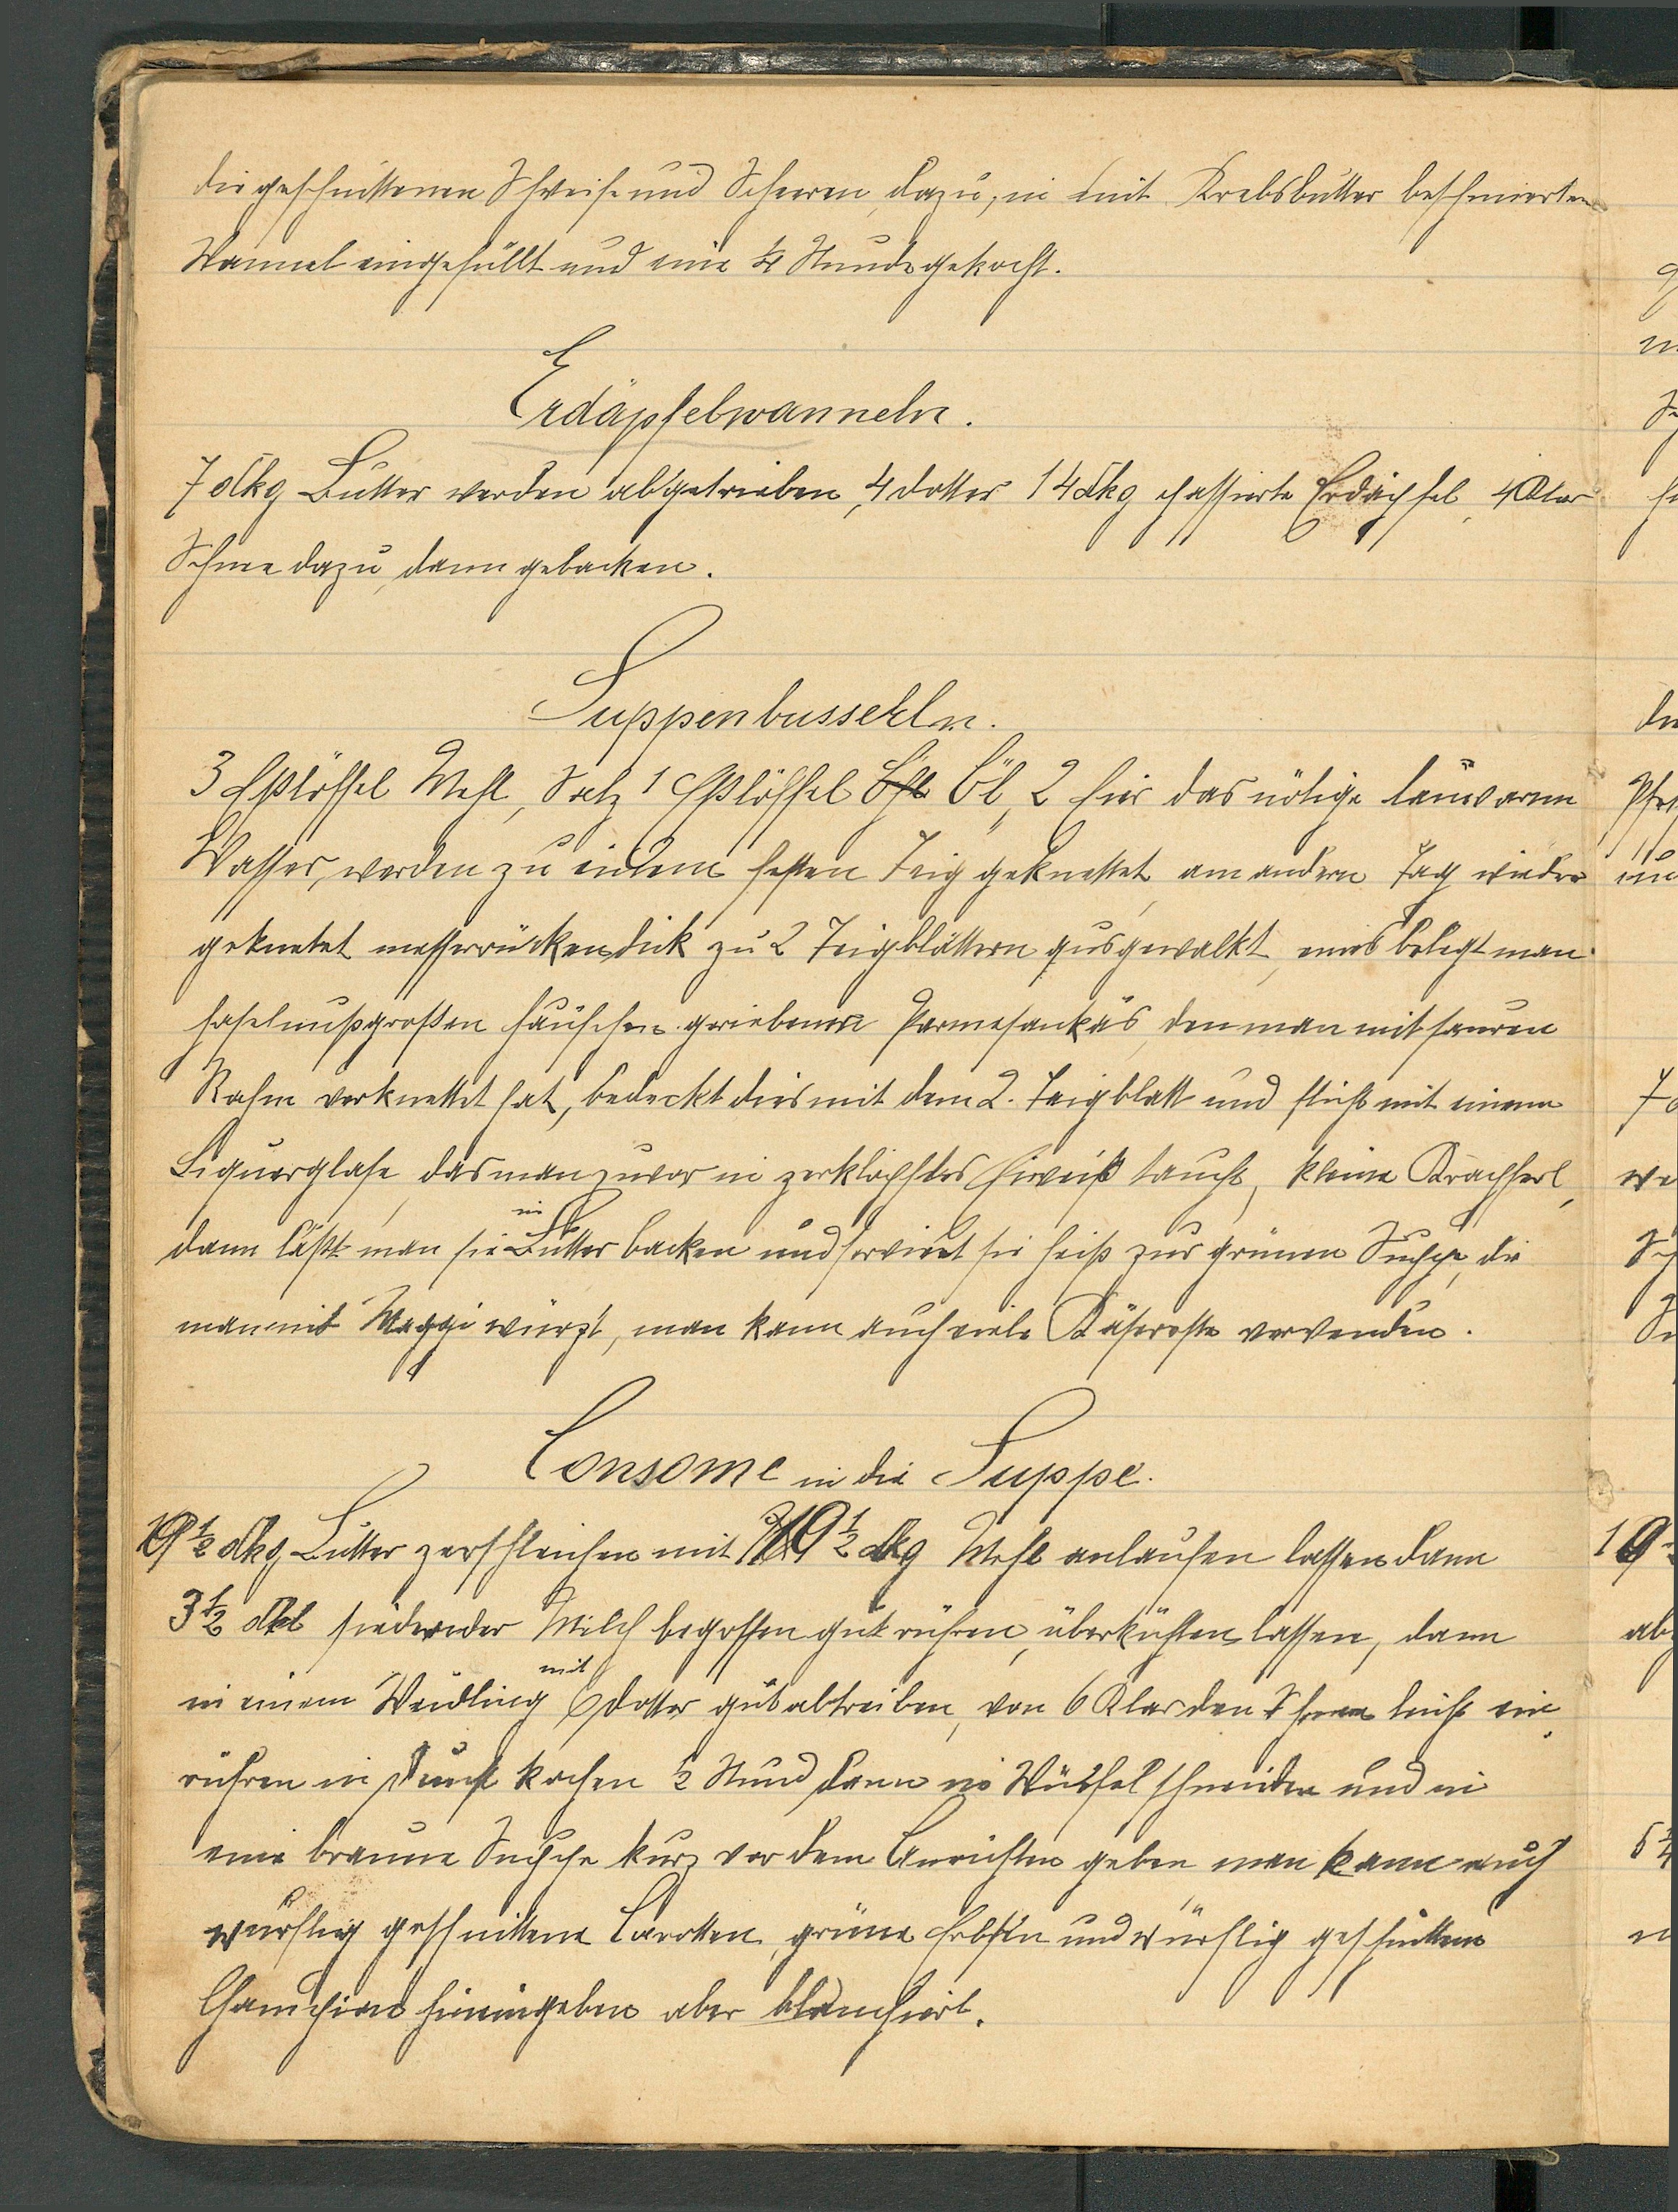 die geschnittenen Schweife und Scheeren, dazu, in mit Krebsbutter beschmierten
Wannel eingefüllt und eine ¼ Stunde gekocht.
Erdäpfelwanneln.
7 dkg Butter werden abgetrieben, 4 Dotter 14 dkg passierte Erdäpfel, 4 Klar
Schnee dazu, dann gebacken.
Suppenbusserln.
3 Eßlöffel Mehl, Salz 1 Eßlöffel Öl, 2 Eier das nötige lauwarme
Wasser, werden zu einem festen Teig geknettet, am andern Tag wieder
geknetet messerrückendick zu 2 Teigblättern ausgewalkt, eines belegt man
haselnußgroßen Häufchen geriebenen Parmesankäs, den man mit sauren
Rahm verknettet hat, bedeckt dies mit dem 2. Teigblatt und sticht mit einem
Liquerglase, das man zuvor in zerklopftes Eiweiß taucht, kleine Krapferl,
dann läßt man sie in Butter backen und serviert sie heiß zur grünen Suppe, die
man mit Maggi würzt, man kann auch viele Käsereste verwenden.
Consome in die Suppe.
10½ dkg Butter zerschleichen mit 10½ dkg Mehl anlaufen lassen dann
3½ dkl siedender Milch begossen gut rühren, überkühlen lassen, dann
in einem Weidling mit 6 Dotter gut abtreiben, von 6 Klar den Schnee leicht ein
rühren in Dunst kochen ½ Stund dann in Würfel schneiden und in
eine braune Suppe kurz vor dem Anrichten geben man kann auch
würflig geschnittene Carotten, grüne Erbsen und würflig geschnittene
Champion hineingeben aber blanchiert.